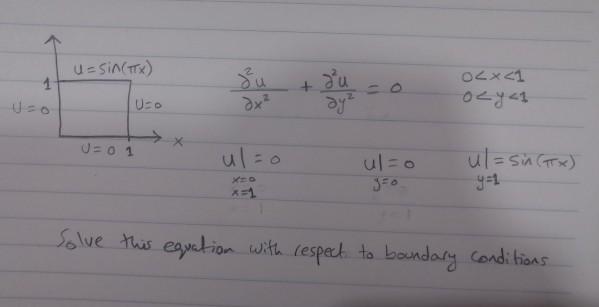 U = sin(πx)
1
U=0
U=0
U=0 1
x
∂²u/∂x² + ∂²u/∂y² = 0
0<x<1
0<y<1
u|=0
x=0
x=1
u|=0
y=0
u|=sin(πx)
y=1
Solve this equation with respect to boundary conditions